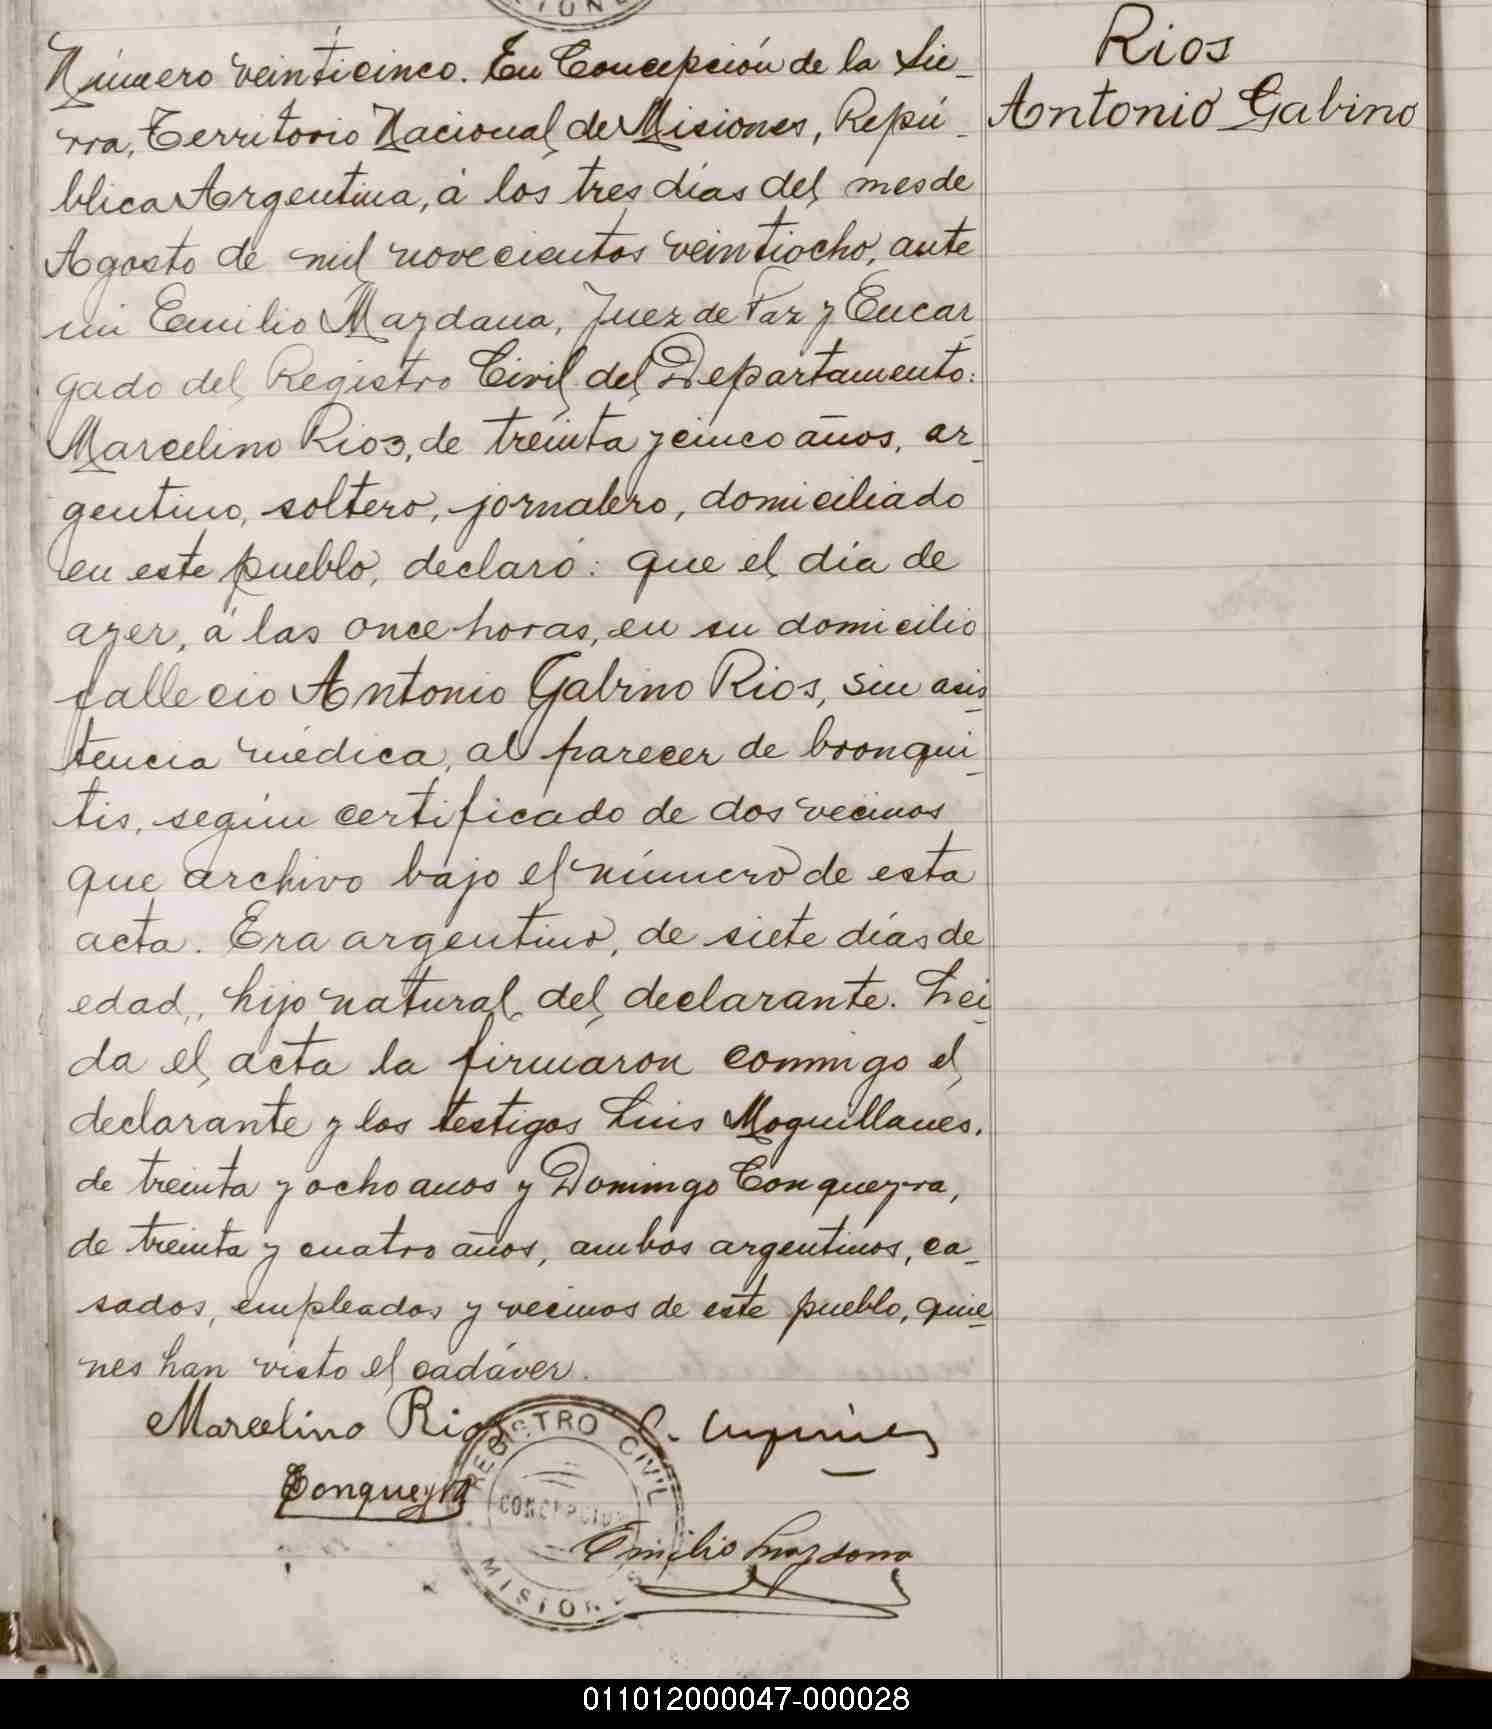 Rios
Antonio Gabino
Número veinticinco. En Concepción de la Sie-
rra, Territorio Nacional de Misiones, Repú-
blica Argentina, á los tres días del mes de
Agosto de mil novecientos veintiocho, ante
mi Emilio Maydana, Juez de Paz y Encar-
gado del Registro Civil del Departamento:
Marcelino Rios, de treinta y cinco años, ar-
gentino, soltero, jornalero, domiciliado
en este pueblo, declaró: que el día de
ayer, á las once horas, en su domicilio
fallecio Antonio Gabino Rios, sin asis-
tencia médica, al parecer de bronqui-
tis, según certificado de dos vecinos
que archivo bajo el número de esta
acta. Era argentino, de siete días de
edad, hijo natural del declarante. Lei-
da el acta la firmaron conmigo el
declarante y los testigos Luis Moguillanes,
de treinta y ocho anos y Domingo Conqueyra,
de treinta y cuatro años, ambos argentinos, ca-
sados, empleados y vecinos de este pueblo, quie-
nes han visto el cadáver.
Marcelino Rios
Conqueyra
REGISTRO CIVIL
CONCEPCION
MISIONES
Emilio Maydana
011012000047-000028